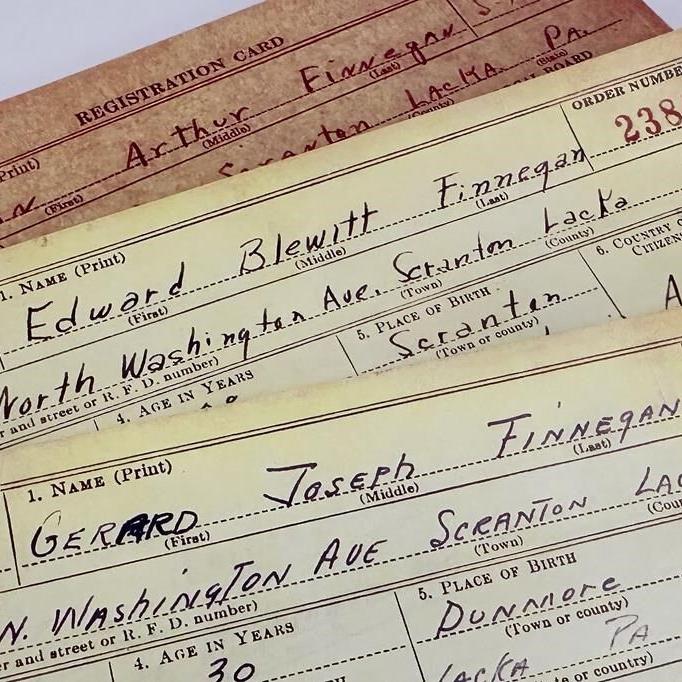 REGISTRATION CARD
Print)
Arthur Finnegan
(First) (Middle) (Last)
Scranton Lacka. Pa.
(County) (State)
BOARD
ORDER NUMBER
238
1. NAME (Print)
Edward Blewitt Finnegan
(First) (Middle) (Last)
North Washington Ave. Scranton Lacka
r and street or R. F. D. number) (Town) (County)
4. AGE IN YEARS
5. PLACE OF BIRTH
Scranton
(Town or county)
6. COUNTRY O
CITIZEN
A
1. NAME (Print)
GERARD JOSEPH FINNEGAN
(First) (Middle) (Last)
N. WAshingTON AUE SCRANTON LAC
er and street or R. F. D. number) (Town) (Coun
4. AGE IN YEARS
30
5. PLACE OF BIRTH
DUNMORE
(Town or county)
LACKA PA
te or country)